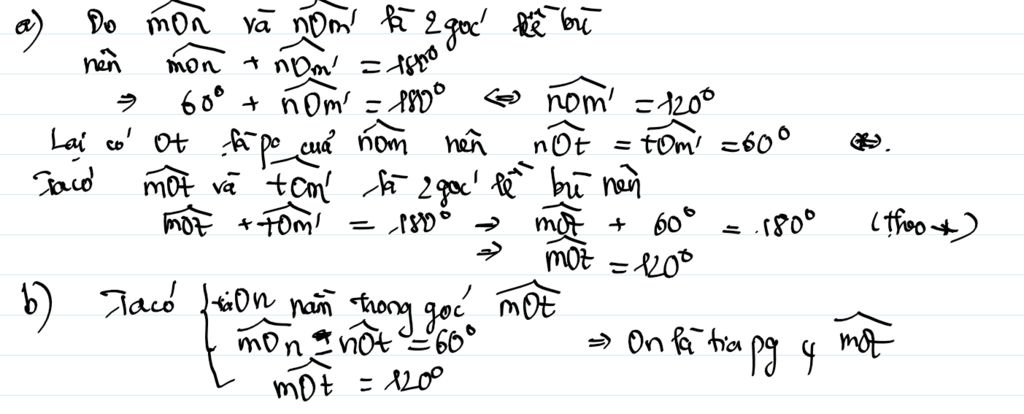 a) Do mOn và nOm' là 2 góc kề bù
nên mOn + nOm' = 180°
⇒ 60° + nOm' = 180° ⇔ nOm' = 120°
Lại có Ot là pg của nOm nên nOt = tOm' = 60° (*).
Ta có mOt và tOm' là 2 góc kề bù nên
mOt + tOm' = 180° → mOt + 60° = 180° (theo *)
⇒ mOt = 120°
b) Ta có { tia On nằm trong góc mOt
mOn = nOt = 60° ⇒ On là tia pg của mOt
mOt = 120°